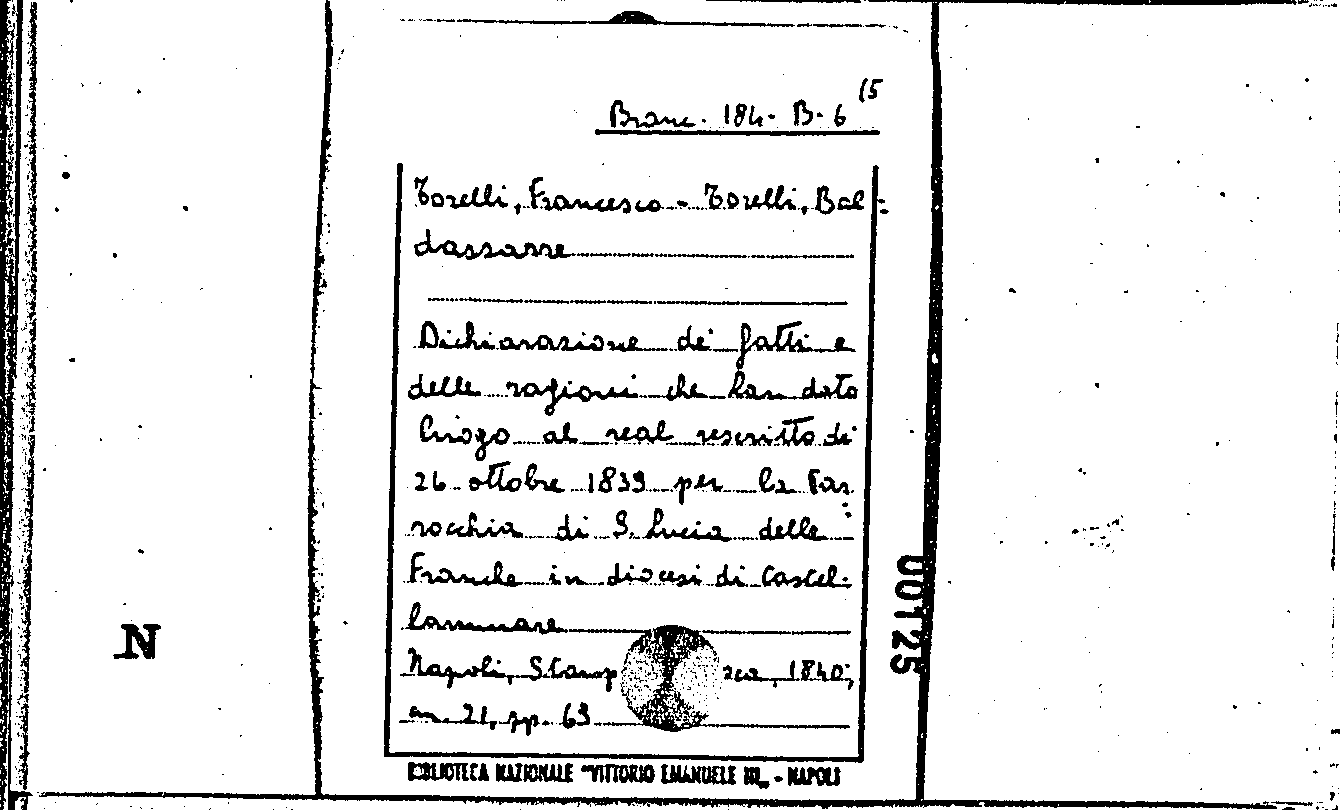 Branc. 184- B- 6 (5
Torelli, Francesco - Torelli, Bal=
dassarre
Dichiarazione de' fatti e
delle ragioni che han dato
luogo al real rescritto di
26 ottobre 1839 per la Par
rocchia di S. Lucia delle
Franche in diocesi di Castel-
lammare
Napoli, Stamp 1840;
21, pp. 63
N
00125
BIBLIOTECA NAZIONALE "VITTORIO EMANUELE III„ - NAPOLI